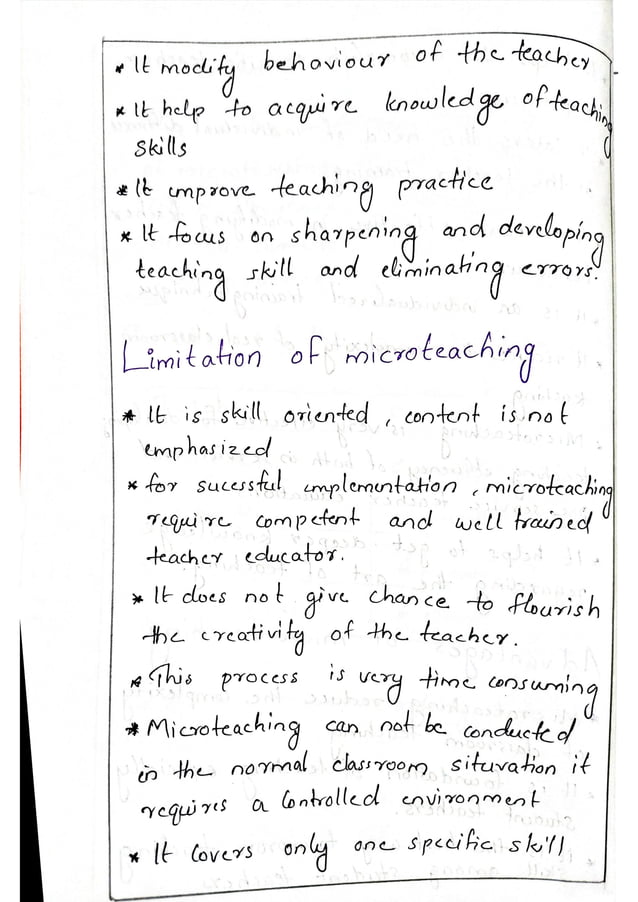 * It modify behaviour of the teacher
* It help to acquire knowledge of teaching
skills
* It improve teaching practice
* It focus on sharpening and developing
teaching skill and eliminating errors.
Limitation of microteaching
* It is skill oriented, content is not
emphasized
* for sucessful implementation, microteaching
require competent and well trained
teacher educator.
* It does not give chance to flourish
the creativity of the teacher.
* This process is very time consuming
* Microteaching can not be conducted
in the normal classroom situvation it
requires a controlled environment
* It covers only one specific skill